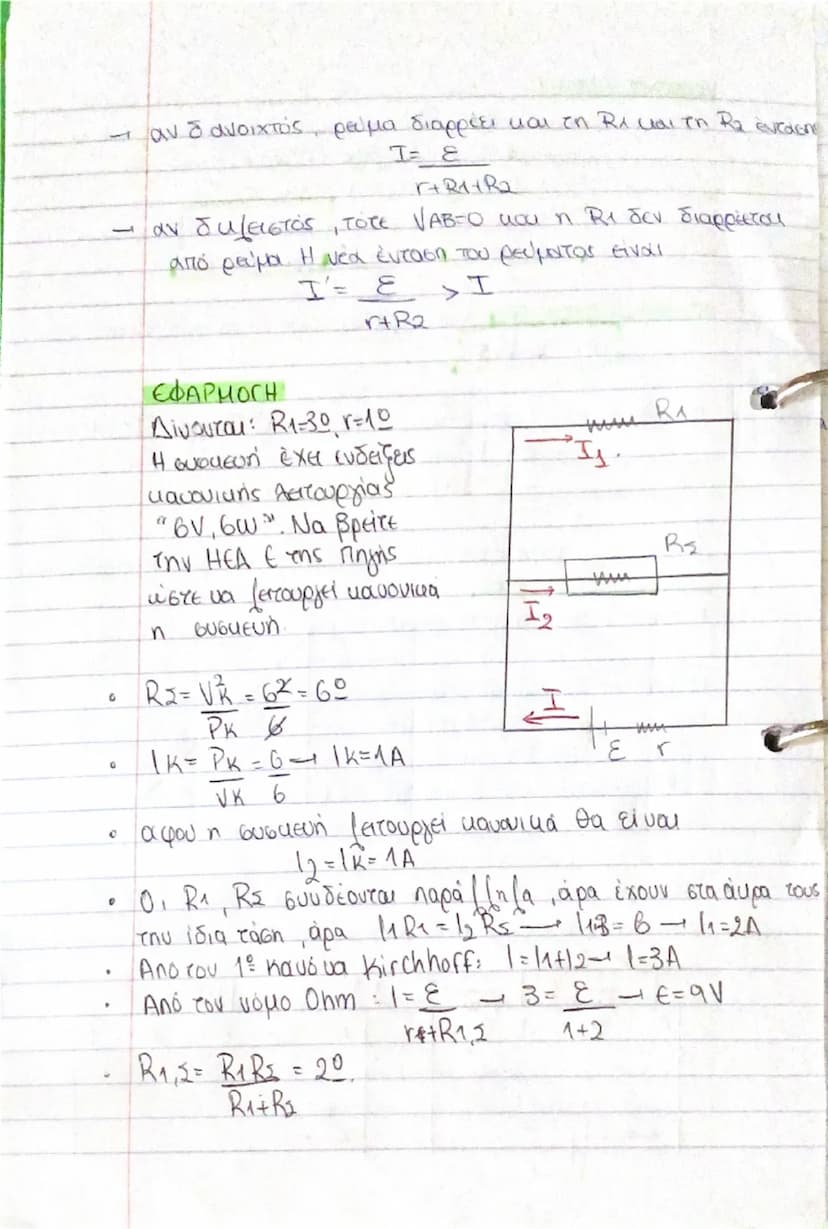 → αν δ ανοιχτός, ρεύμα διαρρέει και τη R1 και τη R2 έντασης
I = ε / r+R1+R2
→ αν δ κλειστός, τότε VAB=0 και η R1 δεν διαρρέεται
από ρεύμα. Η νέα ένταση του ρεύματος είναι
I' = ε / r+R2 > I
ΕΦΑΡΜΟΓΗ
Δίνονται: R1=3Ω, r=1Ω
Η συσκευή έχει ενδείξεις
κανονικής λειτουργίας
"6V, 6W". Να βρείτε
την ΗΕΔ Ε της πηγής
ώστε να λειτουργεί κανονικά
η συσκευή.
R1
I1.
RΣ
I2
I
ε r
• RΣ = Vκ² / Pκ = 6² / 6 = 6Ω
• Iκ = Pκ / Vκ = 6 / 6 → Iκ=1A
• αφου η συσκευή λειτουργεί κανονικά θα είναι
I2 = Iκ = 1A
• Οι R1, RΣ συνδέονται παράλληλα, άρα έχουν στα άκρα τους
την ίδια τάση, άρα I1R1 = I2RΣ → I1·3 = 6 → I1=2A
• Απο τον 1º κανόνα Kirchhoff: I = I1+I2 → I=3A
• Από τον νόμο Ohm: I = ε / r+R1,Σ → 3 = ε / 1+2 → ε=9V
• R1,Σ = R1RΣ / R1+RΣ = 2Ω.